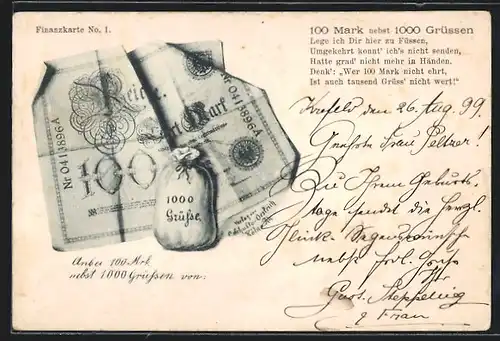 Finanzkarte No. 1.
100 Mark nebst 1000 Grüssen
Lege ich Dir hier zu Füssen,
Umgekehrt konnt' ich's nicht senden,
Hatte grad' nicht mehr in Händen.
Denk': „Wer 100 Mark nicht ehrt,
Ist auch tausend Grüss' nicht wert!"
Nr 0413896A
Mark
0413896A
100
1000
Grüße
Anbei 100 Mrk.
nebst 1000 Grüßen von:
Krefeld den 26. Aug. 99.
Geehrte Frau Peltzer!
Zu Ihrem Geburts
tage sendet die herzl.
Glück- Segenswünsche
nebst
Ihr
Gust.
& Frau